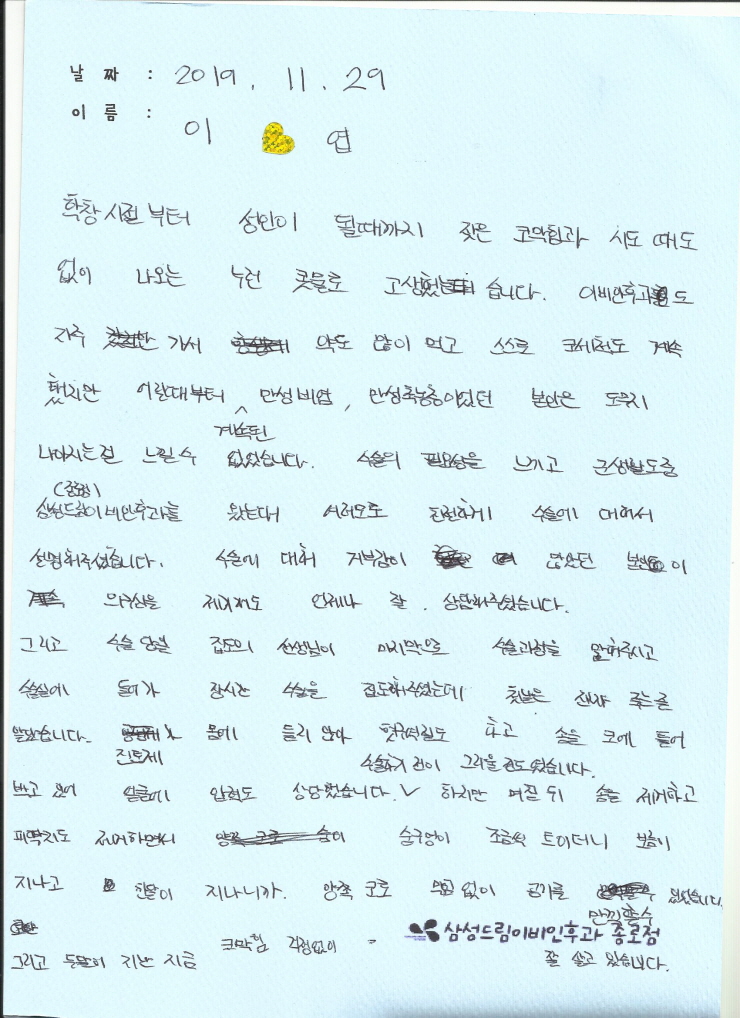 날 짜 : 2019. 11. 29
이 름 : 이 엽
학창시절부터 성인이 될때까지 잦은 코막힘과 시도 때도
없이 나오는 누런 콧물로 고생했습니다. 이비인후과도
자주 가서 약도 많이 먹고 스스로 코세척도 계속
했지만 어릴때부터 계속된 만성비염, 만성축농증이있던 본인은 도무지
나아지는걸 느낄수 없었습니다. 수술의 필요성을 느끼고 군생활도중
삼성드림이비인후과를 (종로) 왔는데 여러모로 친절하게 수술에 대해서
설명해주셨습니다. 수술에 대해 거부감이 많았던 본인이
의구심을 제기해도 언제나 잘 상담해주셨습니다.
그리고 수술 당일 집도의 선생님이 마지막으로 수술과정을 말해주시고
수술실에 들어가 장시간 수술을 집도해주셨는데 첫날은 진짜 죽는줄
알았습니다. 진통제가 몸에 들지 않아 헛구역질도 하고 솜을 코에 틀어
박고 있어 얼굴에 압력도 상당했습니다. 수술하기 전이 그리울 정도였습니다. 하지만 며칠 뒤 솜을 제거하고
피딱지도 제거하면서 숨구멍이 조금씩 트이더니 보름이
지나고 한달이 지나니까. 양쪽 코로 막힘 없이 공기를 만끽할수 있었습니다.
그리고 두달이 지난 지금 코막힘 걱정없이 잘 살고 있습니다.
삼성드림이비인후과 종로점